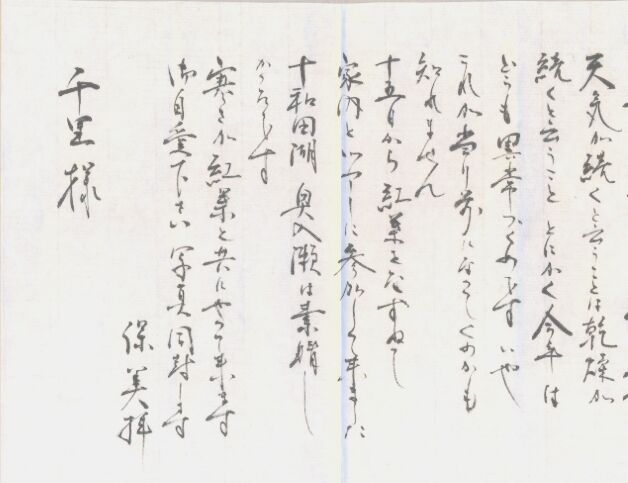 天気が続くと云うことは乾燥が
続くと云うこと とにかく今年は
どこも異常つくめです いや
これが当り前になってしくのかも
知れません
十五日から紅葉をたずねて
家内といっしょに参加して来ました
十和田湖 奥入瀬は素晴し
かったです
寒さが紅葉と共にやって来ます
御自愛下さい 写真同封します
保美拝
千里様